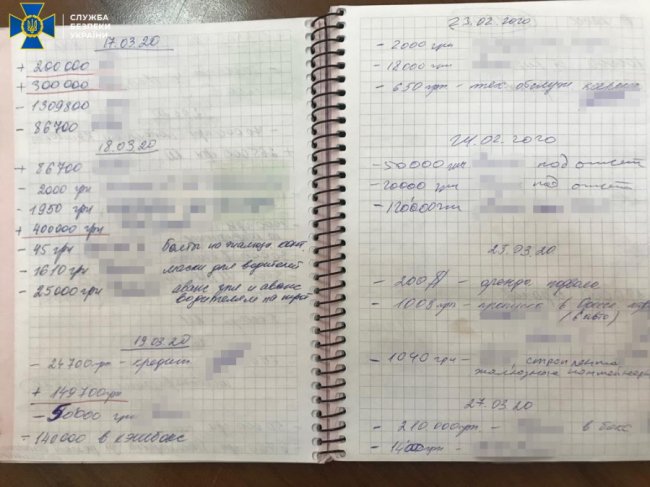 СЛУЖБА
БЕЗПЕКИ
УКРАЇНИ
17.03.20
+ 200 000
+ 300 000
- 1309800
- 86700
18.03.20
+ 86700
- 2000 грн
- 1950 грн
+ 400000 грн
- 45 грн болты
- 1610 грн маски для водителей
- 25000 грн аванс для и аванс
водителям на
19.03.20
- 24700 грн - кредит
+ 149700 грн
- 50000 грн
- 140000 в кэшбокс
23.02.2020
- 2000 грн
- 18000 грн
- 650 грн - тех
24.02.2020
- 50000 грн под отчет
- 20000 грн под отчет
- 120000 грн
25.03.20
- 200 - аренда подвала
- 1008 грн - в Одессе
- 1040 грн -
27.03.20
- 210.000 грн - в бокс
- 1400 грн -